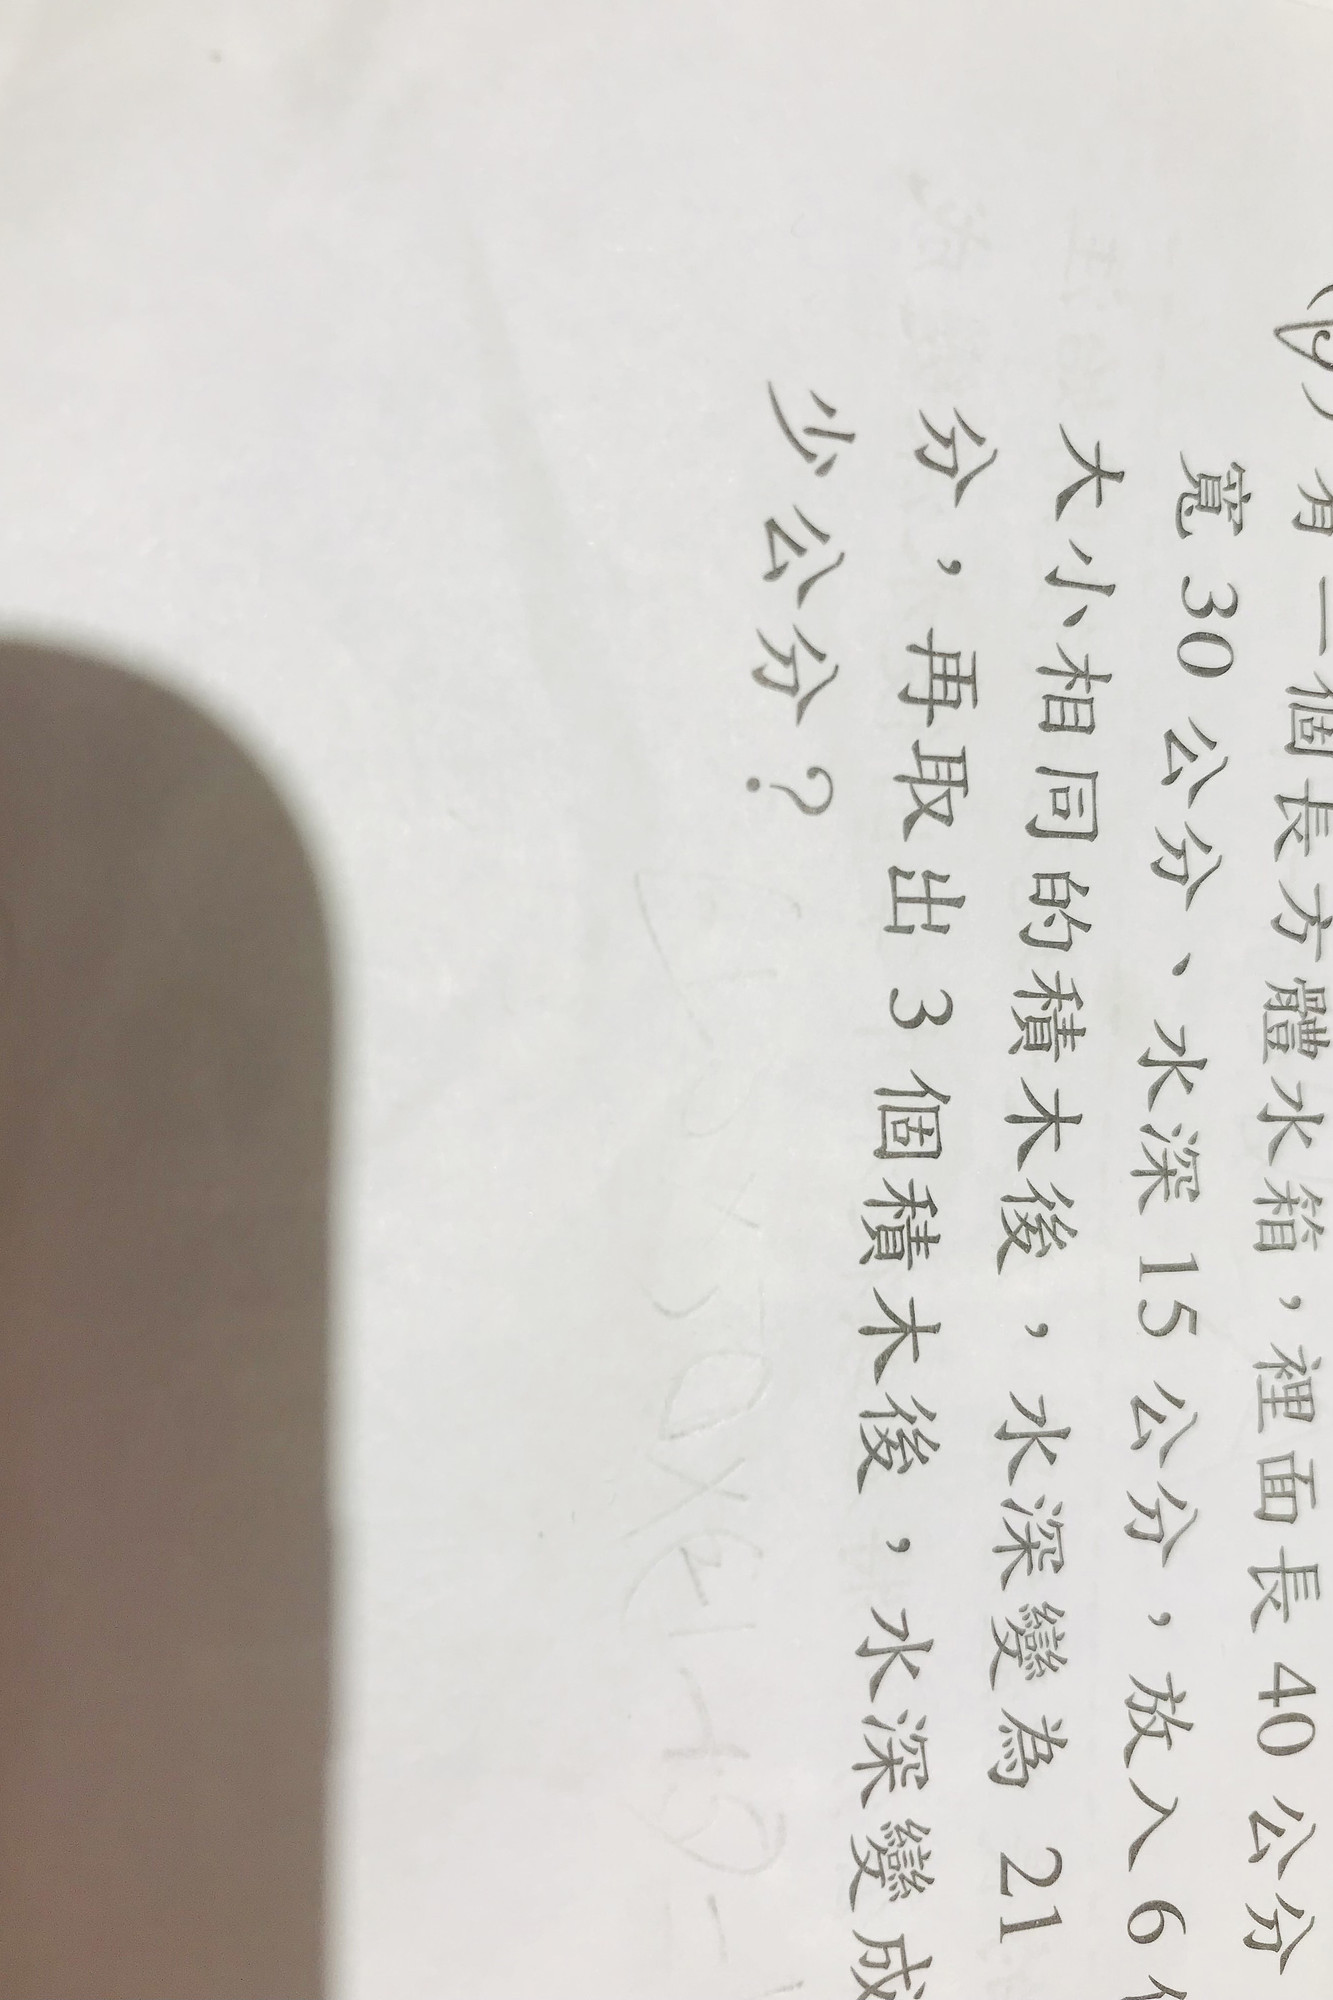 有一個長方體水箱，裡面長 40 公分
寬 30 公分、水深 15 公分，放入 6
大小相同的積木後，水深變為 21
分，再取出 3 個積木後，水深變成
少公分？